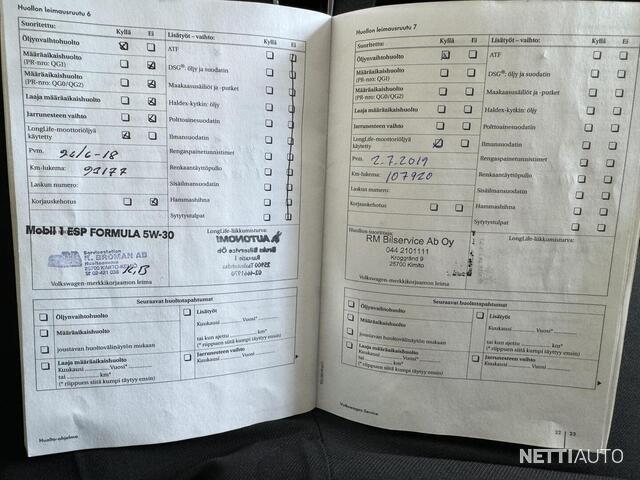 Huollon leimausruutu 6
Suoritettu: Kyllä Ei
Öljynvaihtohuolto
Määräaikaishuolto
(PR-nro: QG1)
Määräaikaishuolto
(PR-nro: QG0/QG2)
Laaja määräaikaishuolto
Jarrunesteen vaihto
LongLife-moottoriöljyä
käytetty
Pvm. 26/6-18
Km-lukema: 92177
Laskun numero:
Korjauskehotus
Lisätyöt – vaihto: Kyllä Ei
ATF
DSG®: öljy ja suodatin
Maakaasusäiliöt ja -putket
Haldex-kytkin: öljy
Polttoainesuodatin
Ilmansuodatin
Rengaspainetunnistimet
Renkaantäyttöpullo
Sisäilmansuodatin
Hammashihna
Sytytystulpat
Mobil 1 ESP FORMULA 5W-30
LongLife-liikkumisturva:
Servicestation
K. BROMAN AB
Huoltoasema
Volkswagen-merkkikorjaamon leima
AUTONOMI
Seuraavat huoltotapahtumat
Öljynvaihtohuolto
Määräaikaishuolto
joustavan huoltovälinäytön mukaan
Laaja määräaikaishuolto
Kuukausi Vuosi*
tai km*
(* riippuen siitä kumpi täytyy ensin)
Lisätyöt
Kuukausi Vuosi*
tai kun ajettu km*
(* riippuen siitä kumpi täyttyy ensin)
Jarrunesteen vaihto
Kuukausi
Vuosi*
Huolto-ohjelma
Huollon leimausruutu 7
Suoritettu: Kyllä Ei
Öljynvaihtohuolto
Määräaikaishuolto
(PR-nro: QG1)
Määräaikaishuolto
(PR-nro: QG0/QG2)
Laaja määräaikaishuolto
Jarrunesteen vaihto
LongLife-moottoriöljyä
käytetty
Pvm. 2.7.2019
Km-lukema: 107920
Laskun numero:
Korjauskehotus
Lisätyöt – vaihto: Kyllä Ei
ATF
DSG®: öljy ja suodatin
Maakaasusäiliöt ja -putket
Haldex-kytkin: öljy
Polttoainesuodatin
Ilmansuodatin
Rengaspainetunnistimet
Renkaantäyttöpullo
Sisäilmansuodatin
Hammashihna
Sytytystulpat
Huollon suorittaja:
LongLife-liikkumisturva:
RM Bilservice Ab Oy
044 2101111
Kroggränd 9
25700 Kimito
Volkswagen-merkkikorjaamon leima
Seuraavat huoltotapahtumat
Öljynvaihtohuolto
Määräaikaishuolto
joustavan huoltovälinäytön mukaan
Laaja määräaikaishuolto
Kuukausi Vuosi*
tai km*
(* riippuen siitä kumpi täytyy ensin)
Lisätyöt
Kuukausi Vuosi*
tai kun ajettu km*
(* riippuen siitä kumpi täyttyy ensin)
Jarrunesteen vaihto
Kuukausi
Vuosi*
Volkswagen Service
22 23
NETTIAUTO